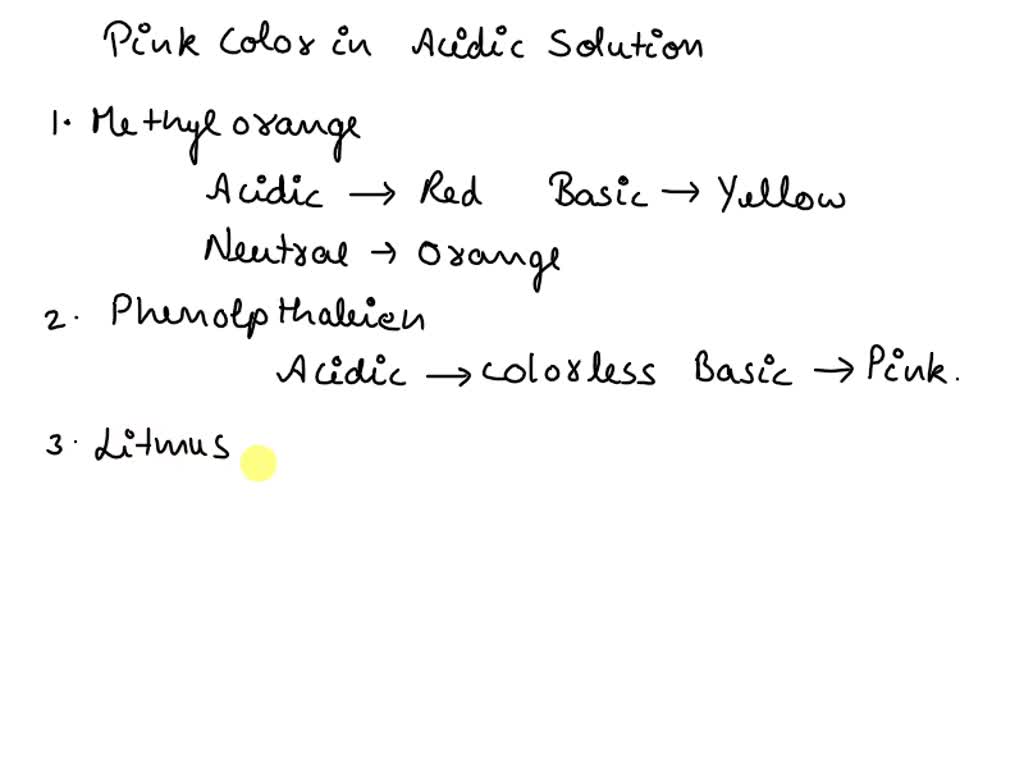 Pink Color in Acidic Solution
1. Methyl orange
Acidic → Red Basic → Yellow
Neutral → Orange
2. Phenolpthaleien
Acidic → colorless Basic → Pink.
3. Litmus